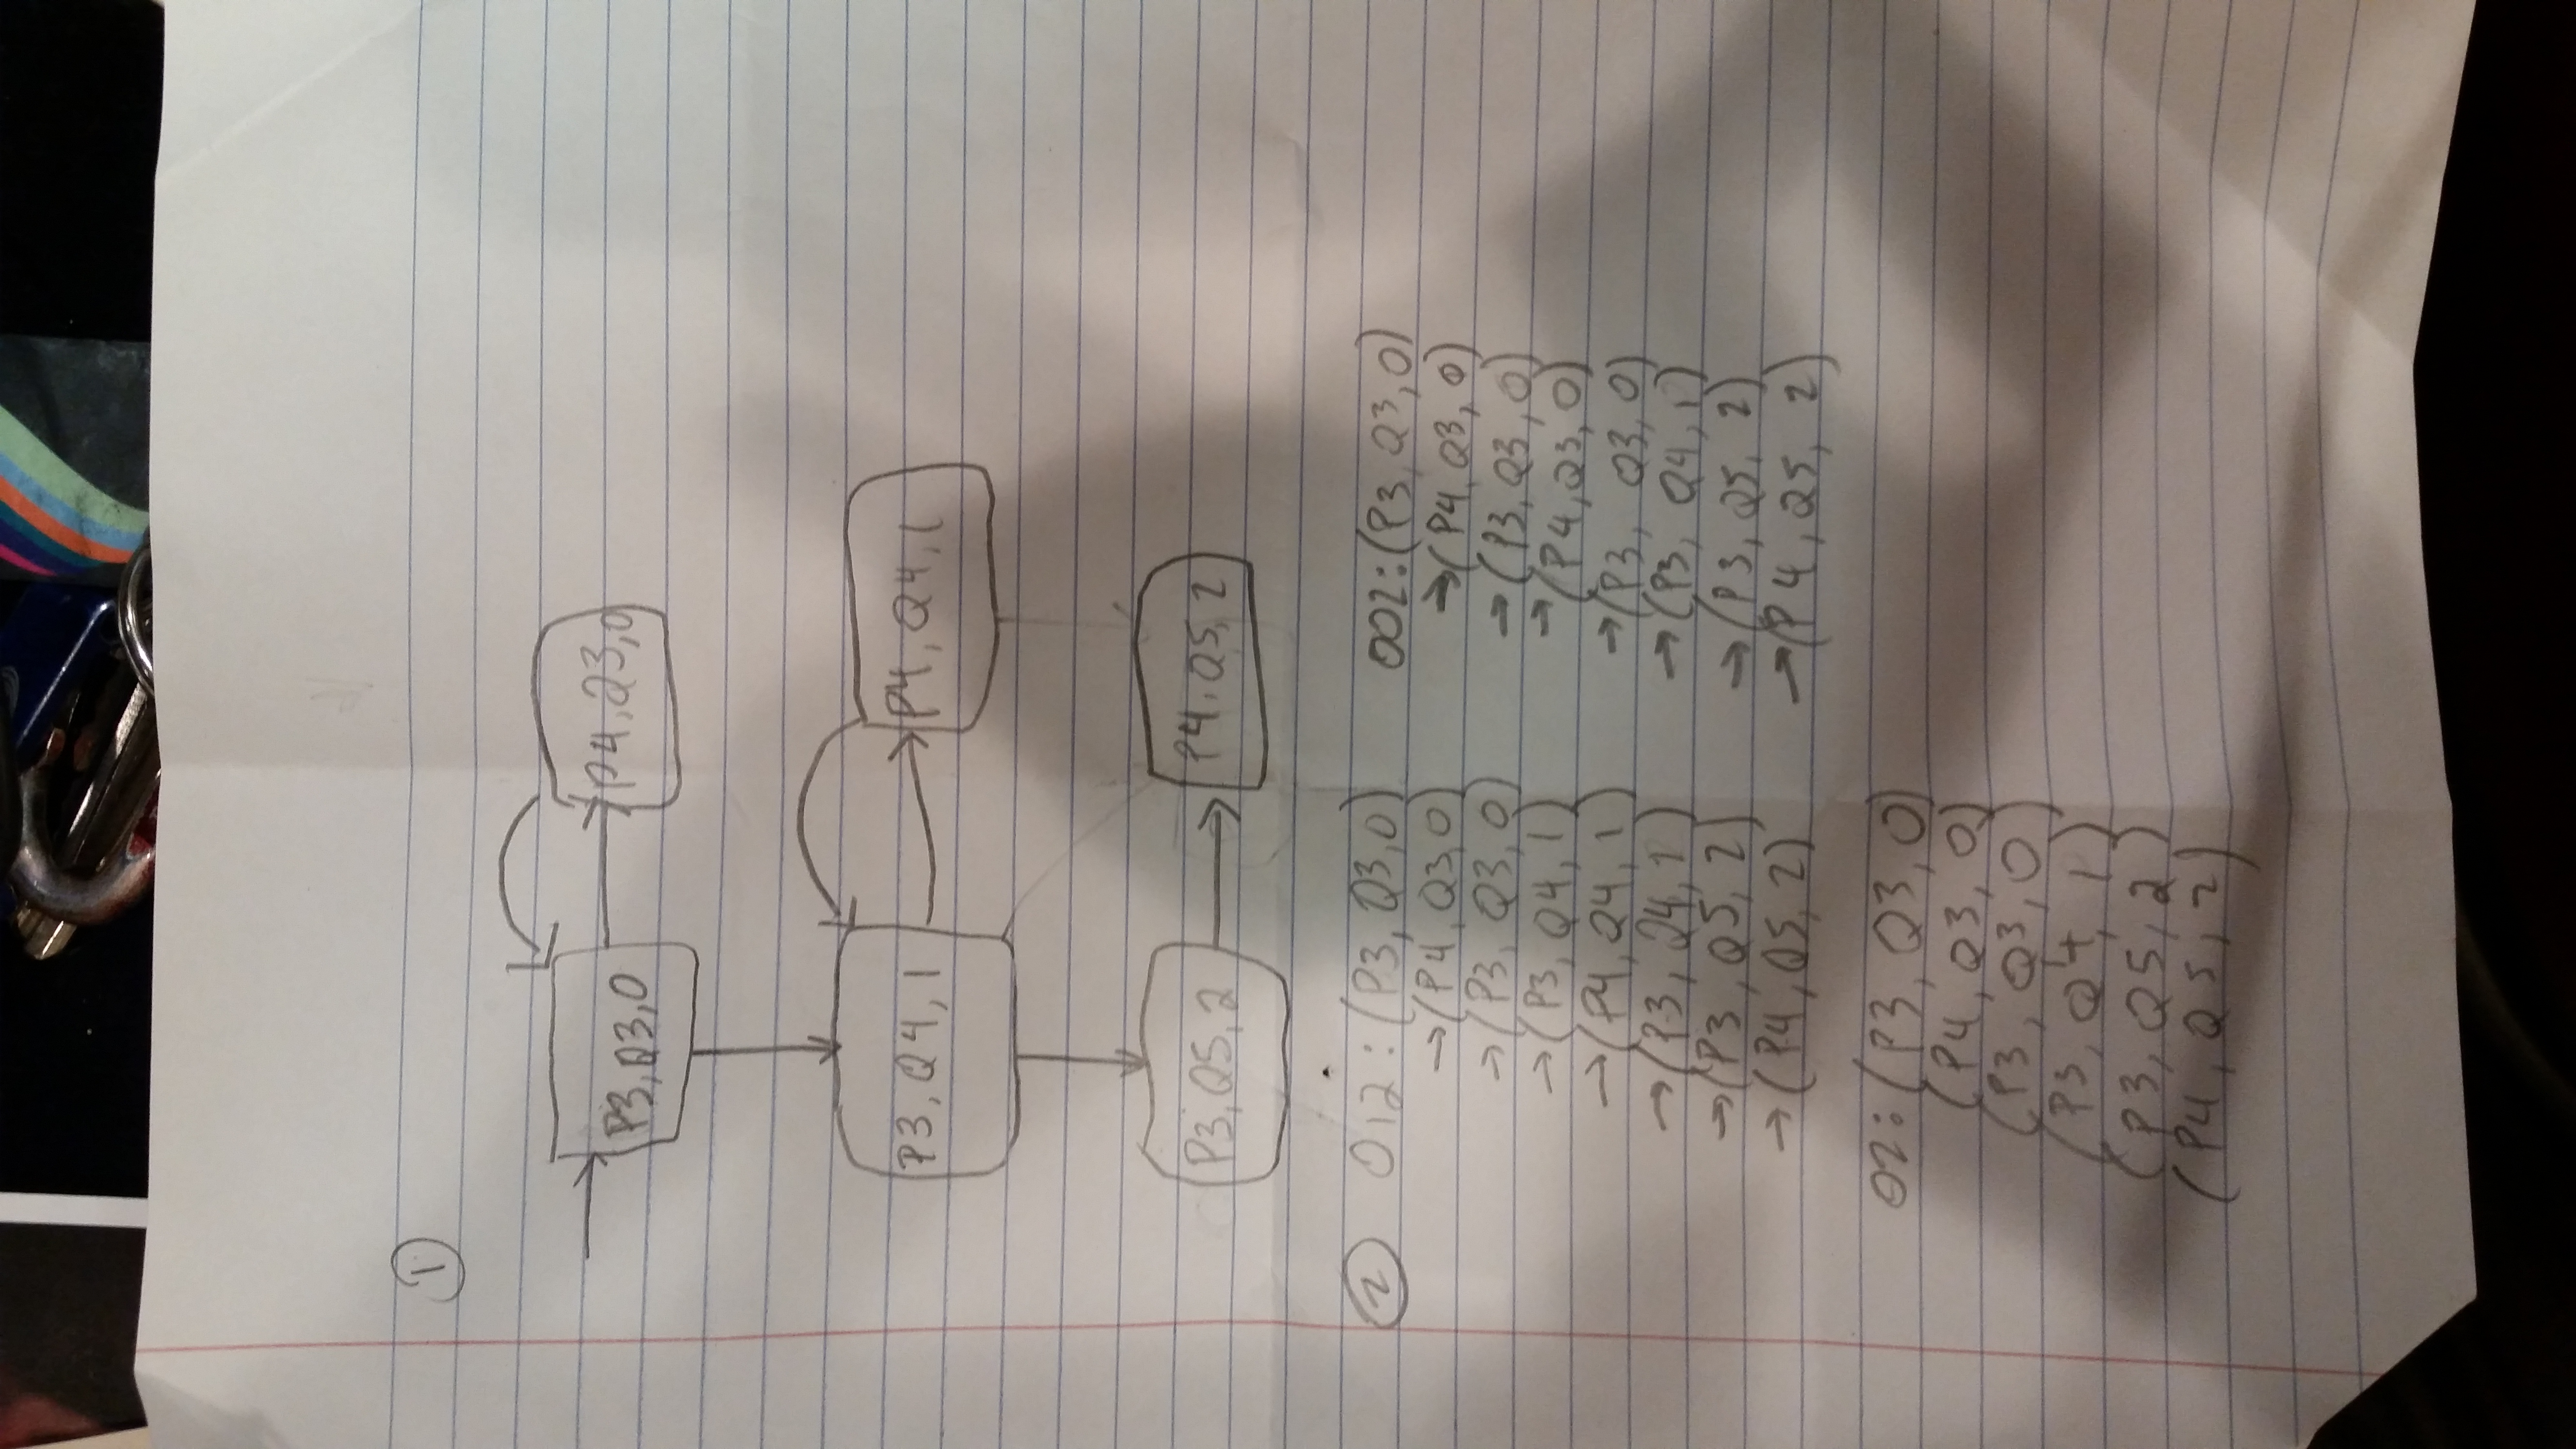 1
P3,Q3,0
P4,Q3,0
P3,Q4,1
P4,Q4,1
P3,Q5,2
P4,Q5,2
2
012:(P3,Q3,0)
→(P4,Q3,0)
→(P3,Q3,0)
→(P3,Q4,1)
→(P4,Q4,1)
→(P3,Q4,1)
→(P3,Q5,2)
→(P4,Q5,2)
002:(P3,Q3,0)
→(P4,Q3,0)
→(P3,Q3,0)
→(P4,Q3,0)
→(P3,Q3,0)
→(P3,Q4,1)
→(P3,Q5,2)
→(P4,Q5,2)
02:(P3,Q3,0)
(P4,Q3,0)
(P3,Q3,0)
(P3,Q4,1)
(P3,Q5,2)
(P4,Q5,2)